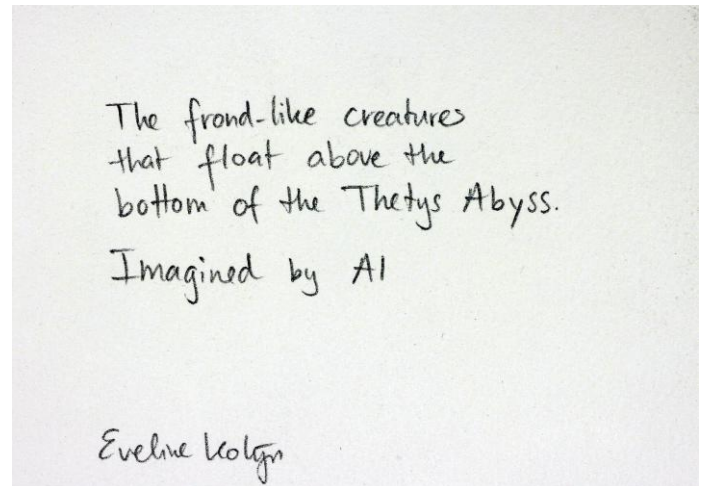 The frond-like creatures
that float above the
bottom of the Thetys Abyss.
Imagined by AI
Eveline Kolijn